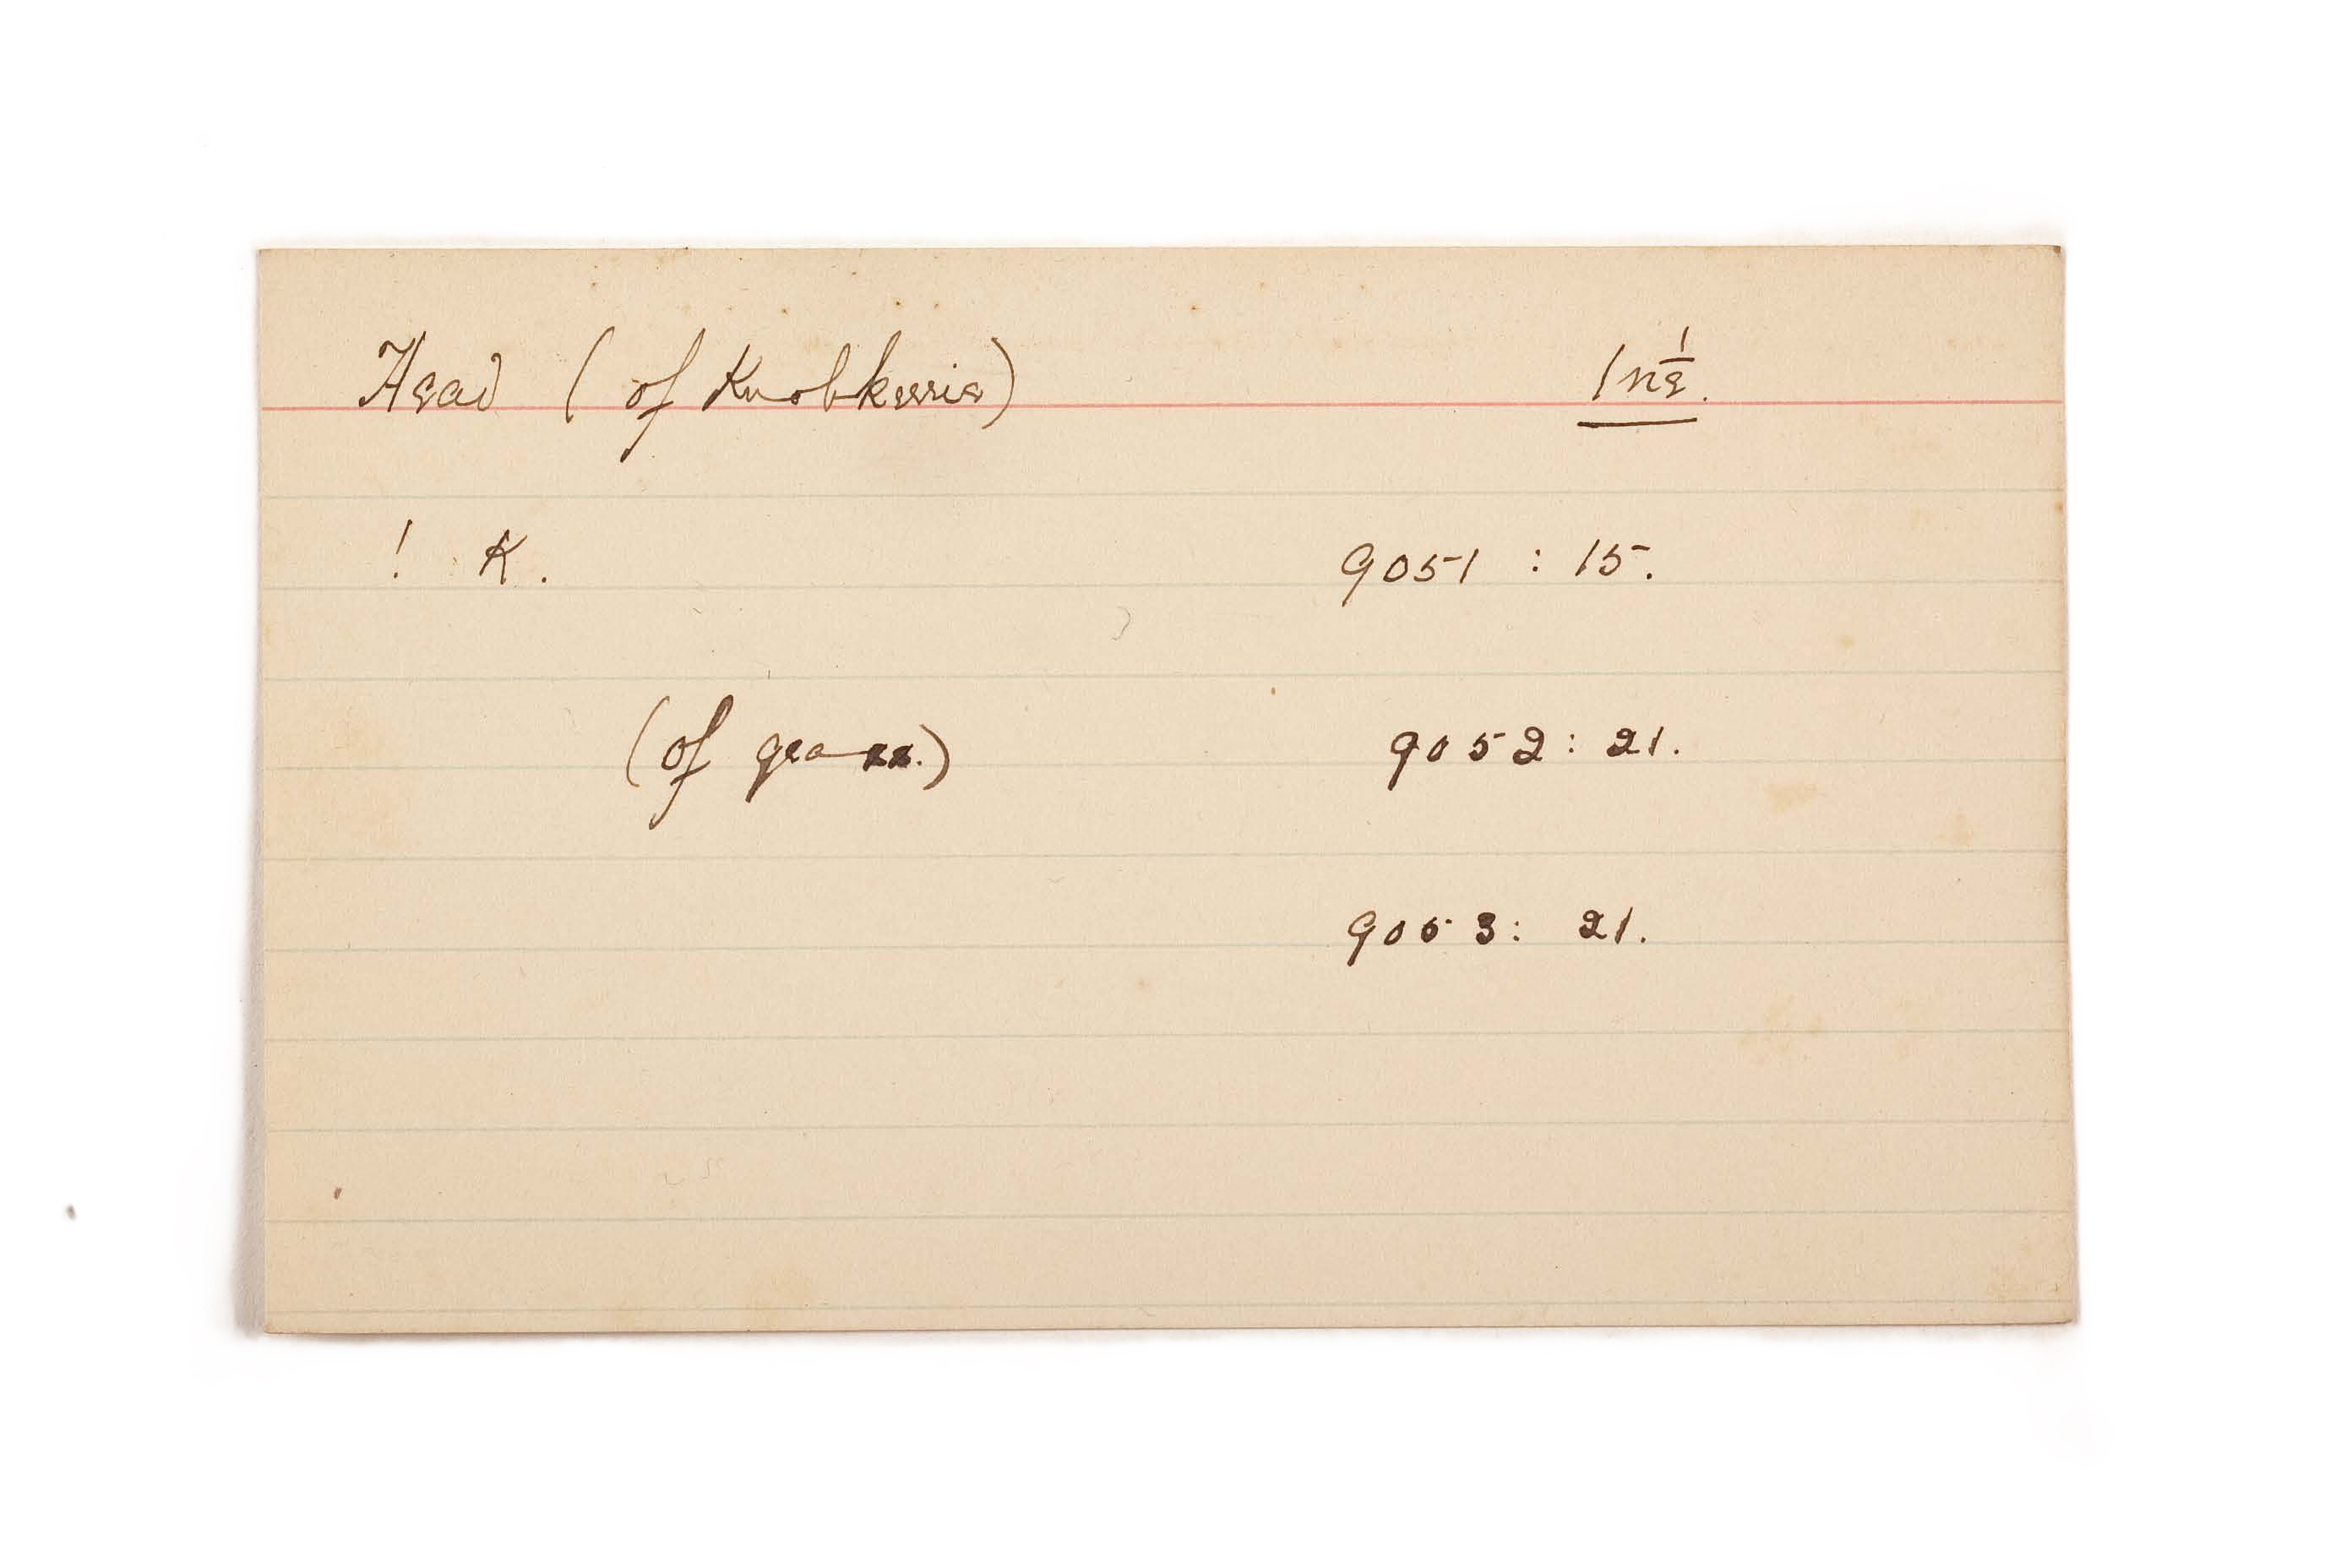 Head (of Knobkerrie)
! K. 9051 : 15.
(of grass.) 9052 : 21.
9053 : 21.